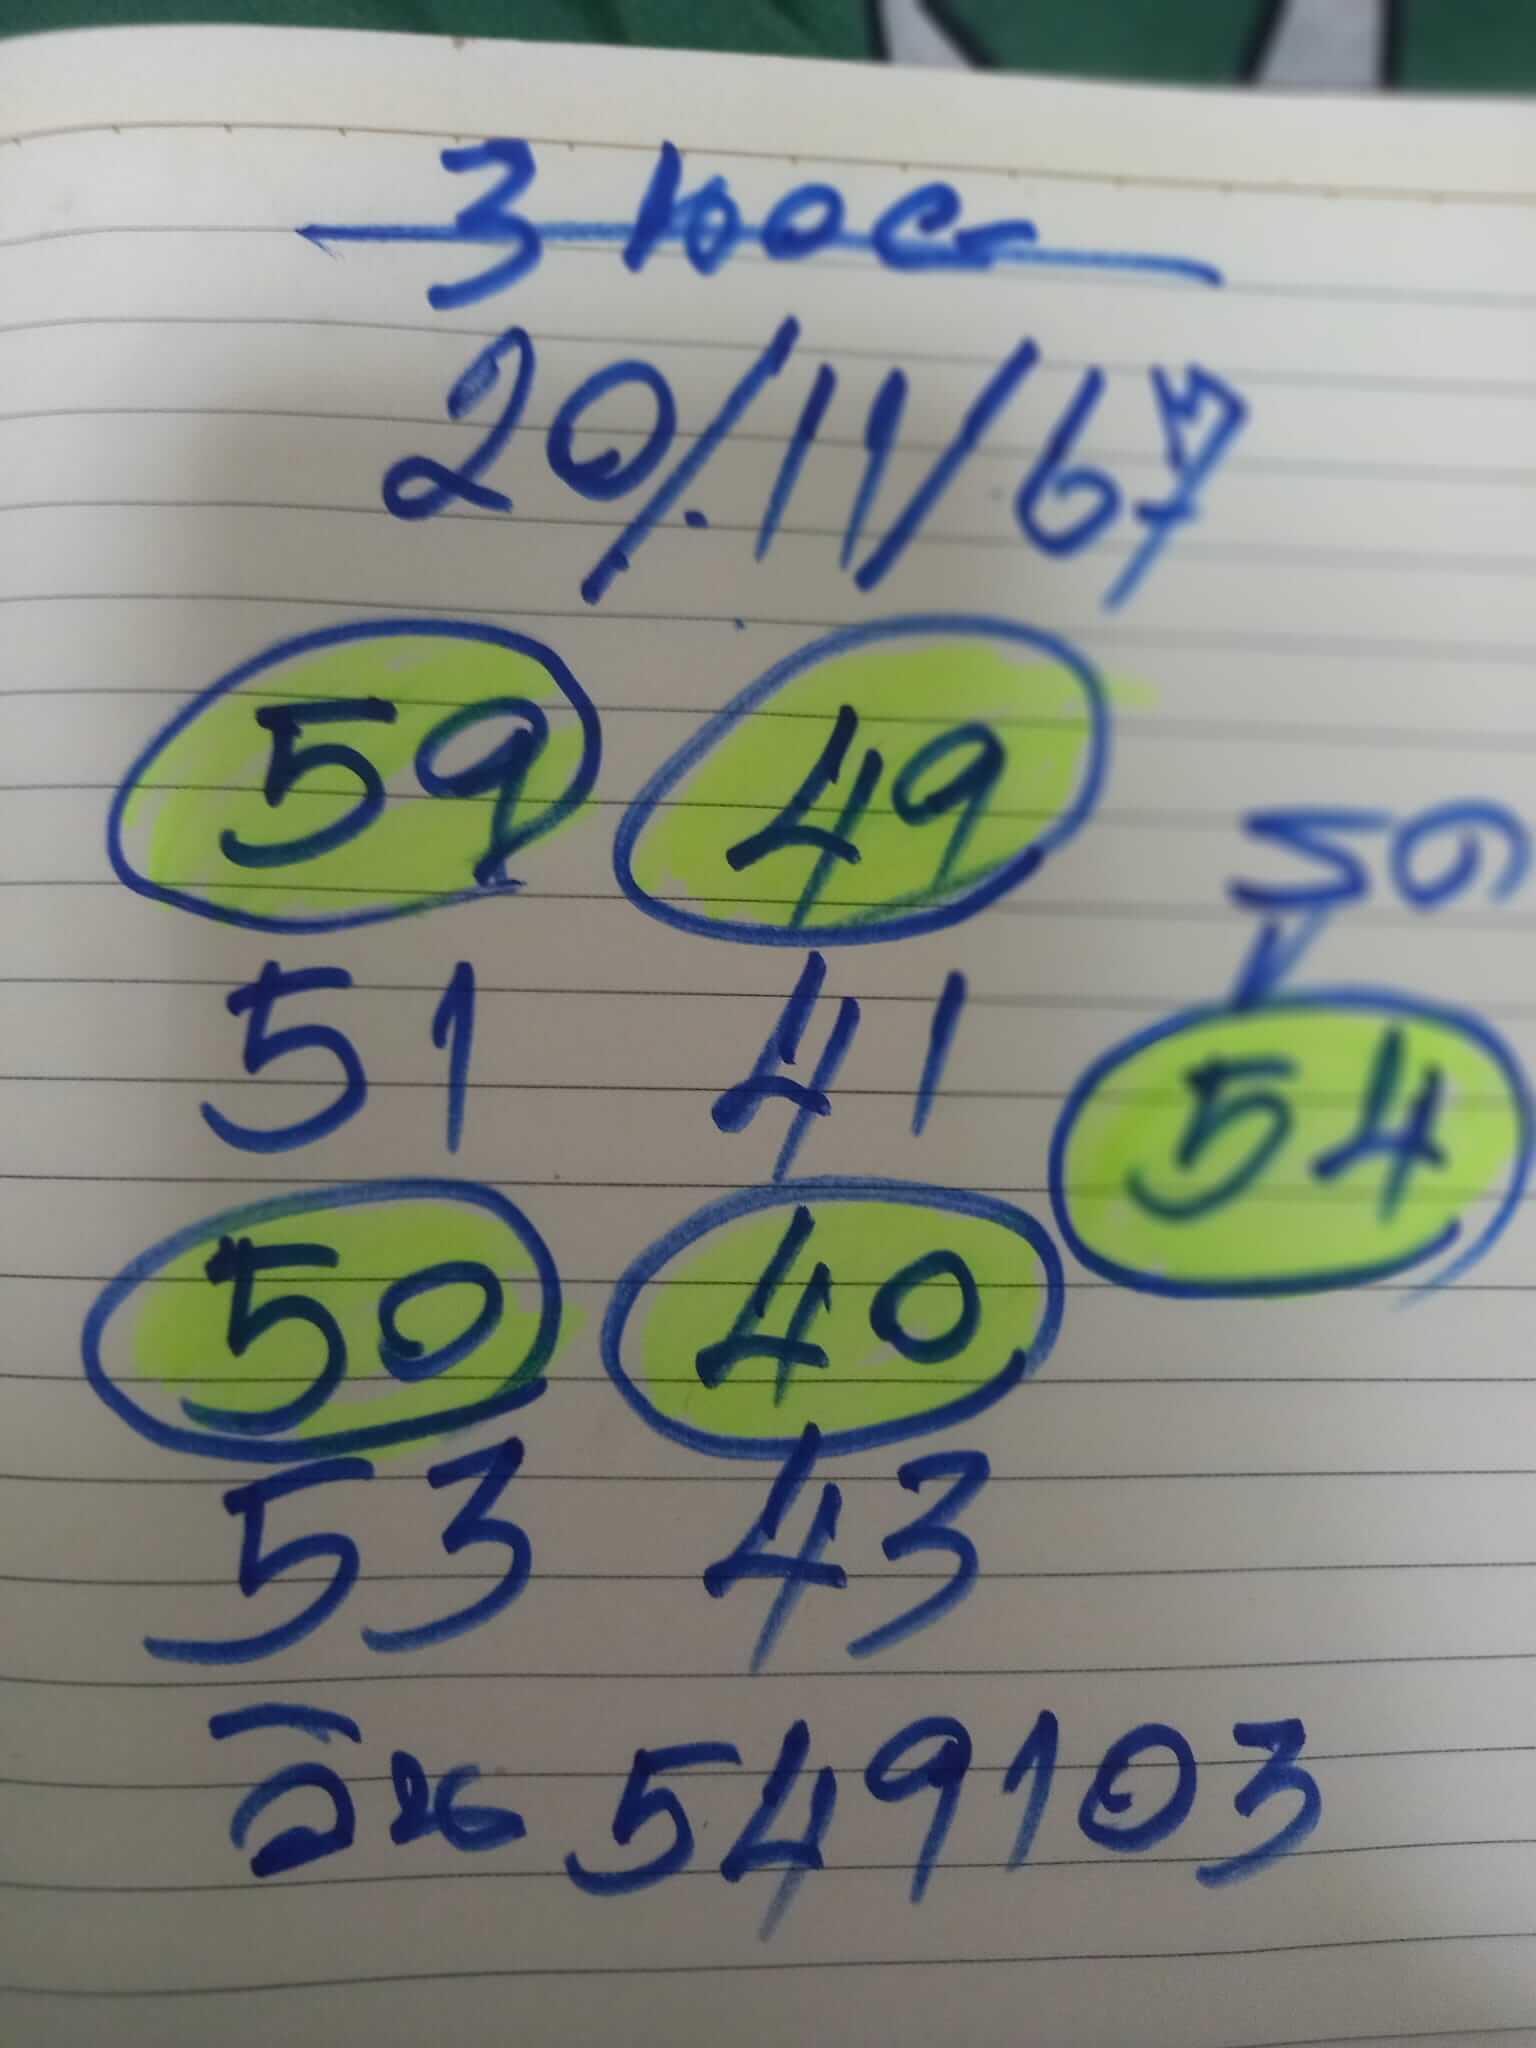 3
20/11/67
59 49
รูด
51 41
54
50 40
53 43
วิน 549103